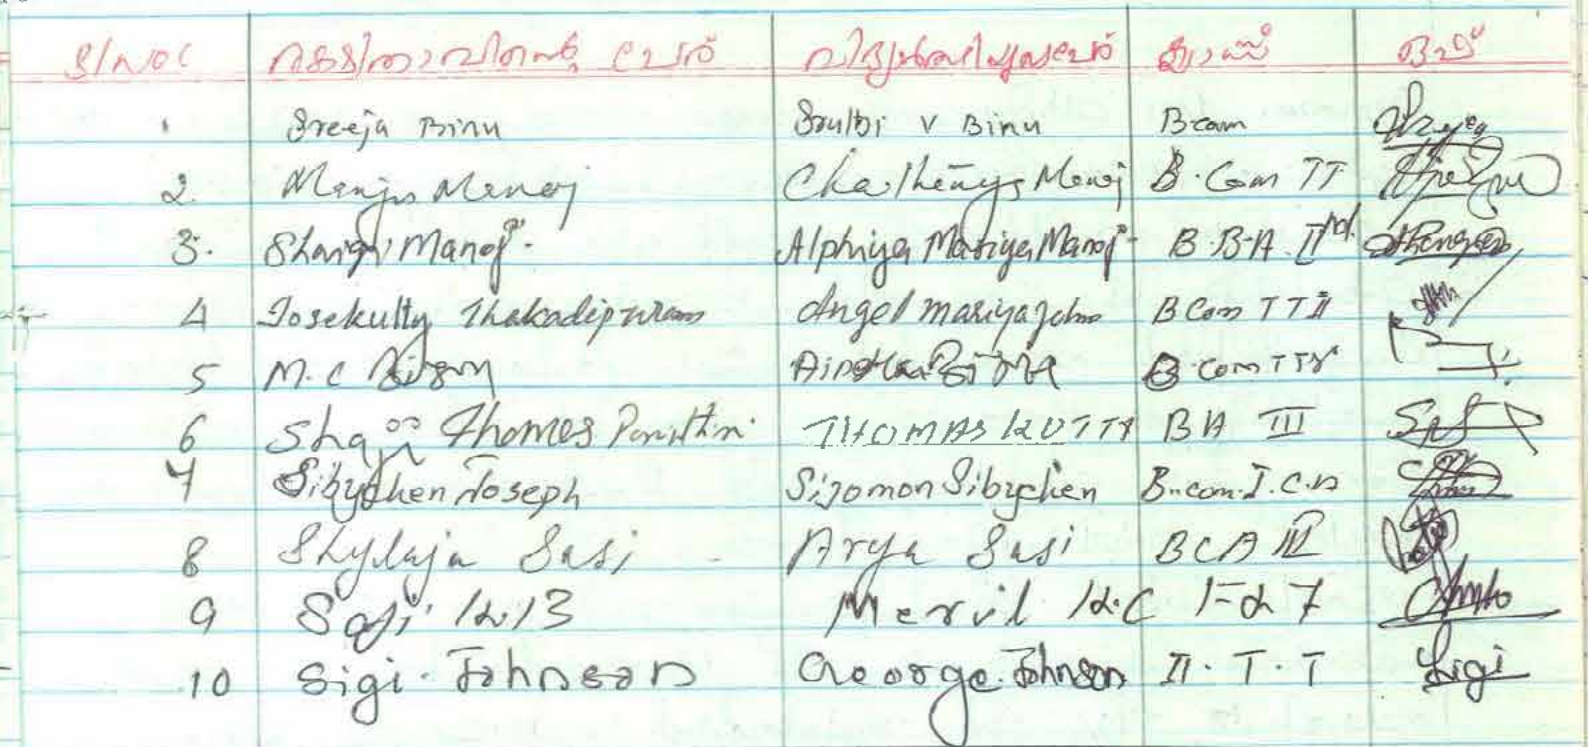 രക്ഷിതാവിന്റെ പേര് വിദ്യാർത്ഥിയുടെ പേര് ക്ലാസ് ഒപ്പ്
1 Sreeja Binu V Binu B.com
2. Manju Manoj Chaithanya Manoj B.Com TT
3. Manoj Alphiya Mariya Manoj B.B.A. II nd.
4 Josekutty Thakadipuram Angel mariya John BCom TT II
5 M.C B.com TT
6 Shaji Thomas THOMAS KUTTY BA III
7 Sibychen Joseph Sijomon Sibychen B.com.I.C.A
8 Shylaja Sasi Arya Sasi BCA III
9 Saji K.B Mervil K.C
10 Sigi. Johnson George. Johnson II. T. T Sigi